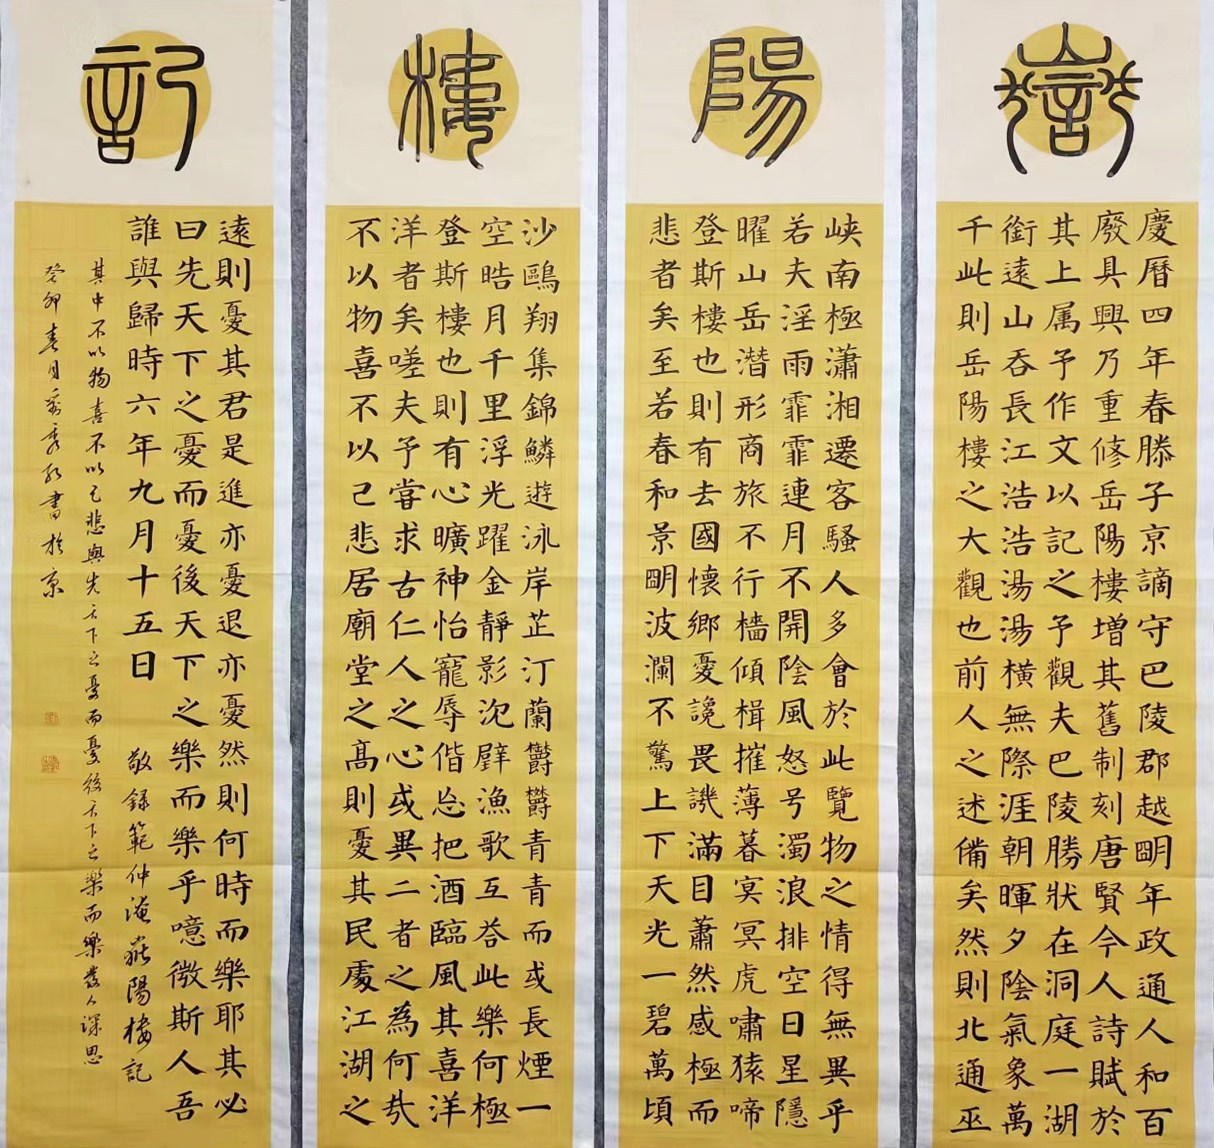 嶽
慶曆四年春滕子京謫守巴陵郡越眀年政通人和百
廢具興乃重修岳陽樓增其舊制刻唐賢今人詩賦於
其上属予作文以記之予觀夫巴陵勝狀在洞庭一湖
銜遠山吞長江浩浩湯湯橫無際涯朝暉夕陰氣象萬
千此則岳陽樓之大觀也前人之述備矣然則北通巫
陽
峡南極瀟湘遷客騷人多會於此覽物之情得無異乎
若夫淫雨霏霏連月不開陰風怒号濁浪排空日星隱
曜山岳潜形商旅不行檣傾楫摧薄暮冥冥虎嘯猿啼
登斯樓也則有去國懷鄉憂讒畏譏滿目蕭然感極而
悲者矣至若春和景眀波瀾不驚上下天光一碧萬頃
樓
沙鷗翔集錦鱗遊泳岸芷汀蘭欝欝青青而或長煙一
空晧月千里浮光躍金靜影沈璧漁歌互荅此樂何極
登斯樓也則有心曠神怡寵辱偕忘把酒臨風其喜洋
洋者矣嗟夫予嘗求古仁人之心或異二者之為何哉
不以物喜不以己悲居廟堂之高則憂其民處江湖之
記
遠則憂其君是進亦憂退亦憂然則何時而樂耶其必
曰先天下之憂而憂後天下之樂而樂乎噫微斯人吾
誰與歸時六年九月十五日
敬録範仲淹嶽陽樓記
其中不以物喜不以己悲與先天下之憂而憂後天下之樂而樂發人深思
癸卯春月書於京